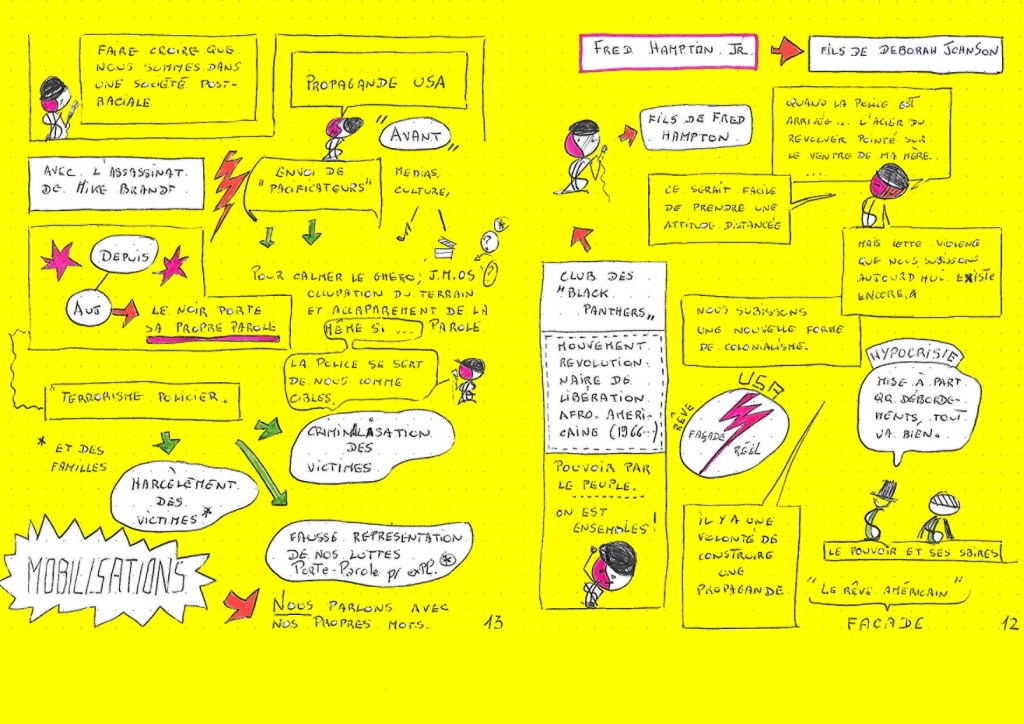 FAIRE CROIRE QUE
NOUS SOMMES DANS
UNE SOCIÉTÉ POST-
RACIALE
PROPAGANDE USA
"AVANT"
AVEC L'ASSASSINAT
DE MIKE BRANDT.
ENVOI DE
"PACIFICATEURS"
MEDIAS,
CULTURE,
?
*
DEPUIS
AUJ
LE NOIR PORTE
SA PROPRE PAROLE
POUR CALMER LE GHETO, J.M.OS
OCCUPATION DU TERRAIN
ET ACCAPAREMENT DE LA
PAROLE
MÊME SI ...
LA POLICE SE SERT
DE NOUS COMME
CIBLES.
TERRORISME POLICIER.
* ET DES
FAMILLES
CRIMINALISATION
DES
VICTIMES
HARCÈLEMENT
DES
VICTIMES*
FAUSSE REPRÉSENTATION
DE NOS LUTTES
PORTE-PAROLE P/ EXPL. *
MOBILISATIONS
NOUS PARLONS AVEC
NOS PROPRES MOTS.
13
FRED HAMPTON JR.
FILS DE DEBORAH JOHNSON
FILS DE FRED
HAMPTON.
QUAND LA POLICE EST
ARRIVÉE... L'ACIER DU
REVOLVER POINTÉ SUR
LE VENTRE DE MA MÈRE..
CE SERAIT FACILE
DE PRENDRE UNE
ATTITUDE DISTANCÉE
MAIS CETTE VIOLENCE
QUE NOUS SUBISSONS
AUJOURD'HUI EXISTE
ENCORE.
CLUB DES
"BLACK
PANTHERS"
NOUS SUBISSONS
UNE NOUVELLE FORME
DE COLONIALISME.
MOUVEMENT
REVOLUTION-
NAIRE DE
LIBÉRATION
AFRO-AMÉRI-
CAINE (1966...)
HYPOCRISIE
MISE À PART
QQ. DÉBORDE-
MENTS, TOUT
VA BIEN.
USA
RÊVE
FAÇADE
RÉEL
POUVOIR PAR
LE PEUPLE.
ON EST
ENSEMBLES!
IL Y A UNE
VOLONTÉ DE
CONSTRUIRE
UNE
PROPAGANDE.
LE POUVOIR ET SES SBIRES
"LE RÊVE AMÉRICAIN"
FAÇADE
12